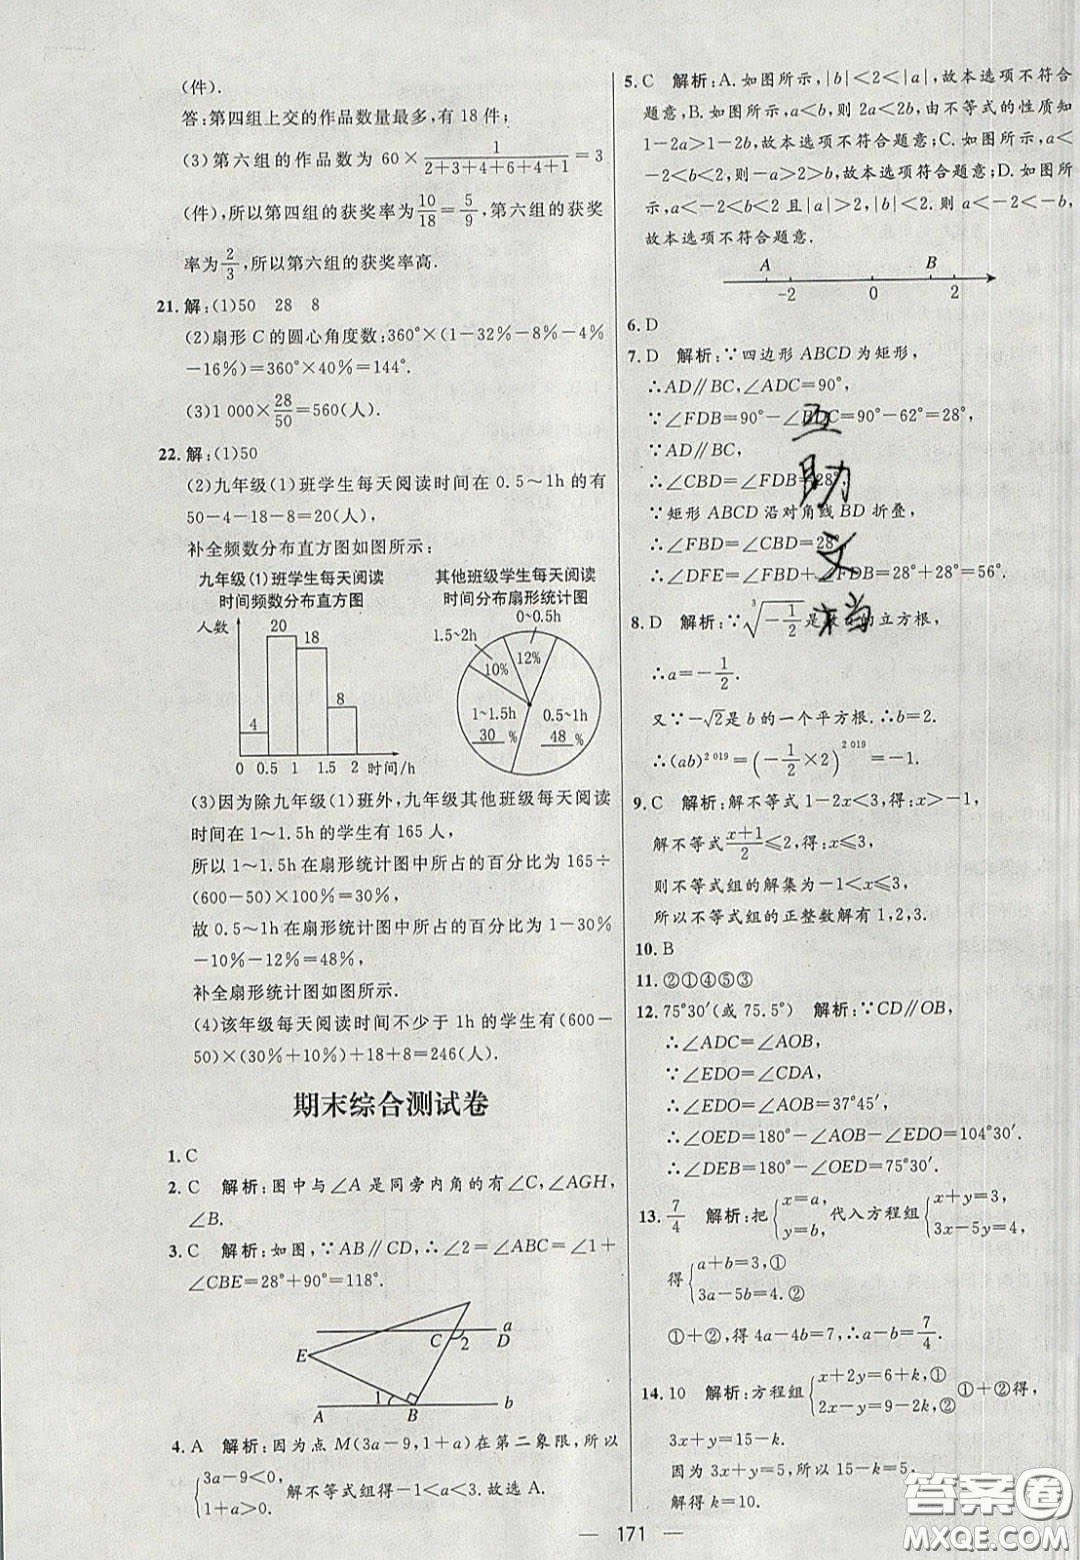 (件).
答:第四组上交的作品数量最多,有18件;
(3)第六组的作品数为60×1/(2+3+4+6+4+1)=3
(件),所以第四组的获奖率为10/18=5/9,第六组的获奖
率为2/3,所以第六组的获奖率高.
21.解:(1)50 28 8
(2)扇形C的圆心角度数:360°×(1-32%-8%-4%
-16%)=360°×40%=144°.
(3)1 000×28/50=560(人).
22.解:(1)50
(2)九年级(1)班学生每天阅读时间在0.5~1h的有
50-4-18-8=20(人),
补全频数分布直方图如图所示:
九年级(1)班学生每天阅读
时间频数分布直方图
人数
20
18
8
4
0 0.5 1 1.5 2 时间/h
其他班级学生每天阅读
时间分布扇形统计图
0~0.5h
1.5~2h
12%
10%
1~1.5h
30 %
0.5~1h
48 %
(3)因为除九年级(1)班外,九年级其他班级每天阅读
时间在1~1.5h的学生有165人,
所以1~1.5h在扇形统计图中所占的百分比为165÷
(600-50)×100%=30%,
故0.5~1h在扇形统计图中所占的百分比为1-30%
-10%-12%=48%,
补全扇形统计图如图所示.
(4)该年级每天阅读时间不少于1h的学生有(600-
50)×(30%+10%)+18+8=246(人).
期末综合测试卷
1.C
2.C 解析:图中与∠A是同旁内角的有∠C,∠AGH,
∠B.
3.C 解析:如图,∵AB∥CD,∴∠2=∠ABC=∠1+
∠CBE=28°+90°=118°.
a
C 2 D
E
1
A B b
4.A 解析:因为点M(3a-9,1+a)在第二象限,所以
{3a-9<0, 1+a>0. 解不等式组得-1<a<3.故选A.
5.C 解析:A.如图所示,|b|<2<|a|,故本选项不符合
题意,B.如图所示,a<b,则2a<2b,由不等式的性质知
1-2a>1-2b,故本选项不符合题意;C.如图所示,a<
-2<b<2,则-a>2>b,故本选项符合题意;D.如图所
示,a<-2<b<2且|a|>2,|b|<2.则a<-2<-b,
故本选项不符合题意.
A B
-2 0 2
6.D
7.D 解析:∵四边形ABCD为矩形,
∴AD∥BC,∠ADC=90°,
∵∠FDB=90°-∠BDC=90°-62°=28°,
∵AD∥BC,
∴∠CBD=∠FDB=28°
∵矩形ABCD沿对角线BD折叠,
∴∠FBD=∠CBD=28°
∴∠DFE=∠FBD+∠FDB=28°+28°=56°.
互助文档
8.D 解析:∵∛(-1/2)是的立方根,
∴a=-1/2.
又∵-√2是b的一个平方根.∴b=2.
∴(ab)^2 019=(-1/2×2)^2 019=-1.
9.C 解析:解不等式1-2x<3,得:x>-1,
解不等式(x+1)/2≤2,得:x≤3,
则不等式组的解集为-1<x≤3,
所以不等式组的正整数解有1,2,3.
10.B
11.②①④⑤③
12.75°30′(或75.5°) 解析:∵CD∥OB,
∴∠ADC=∠AOB,
∵∠EDO=∠CDA,
∴∠EDO=∠AOB=37°45′,
∴∠OED=180°-∠AOB-∠EDO=104°30′.
∴∠DEB=180°-∠OED=75°30′.
13.7/4 解析:把{x=a, y=b, 代入方程组{x+y=3, 3x-5y=4,
得{a+b=3,① 3a-5b=4.②
①+②,得4a-4b=7,∴a-b=7/4.
14.10 解析:方程组{x+2y=6+k,① 2x-y=9-2k,② ①+②得,
3x+y=15-k.
因为3x+y=5,所以15-k=5.
解得k=10.
171
答案圈
MXQE.COM